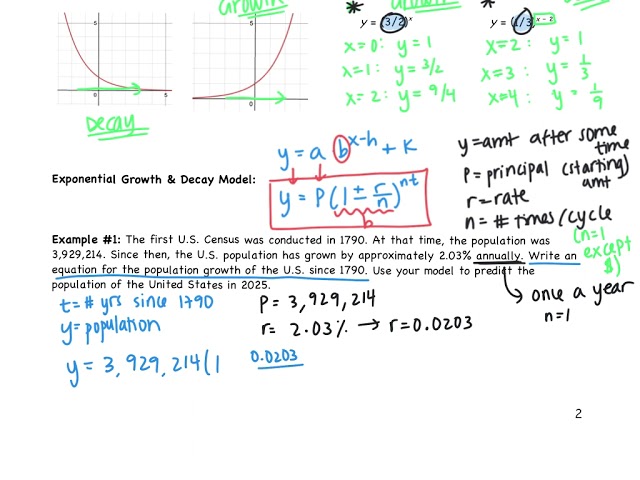 Growth
5
5
5
5
Decay
* Growth
y = (3/2)^x
x=0: y = 1
x=1: y = 3/2
x=2: y = 9/4
* Decay
y = (1/3)^{x-2}
x=2: y = 1
x=3: y = 1/3
x=4: y = 1/9
y = a b^{x-h} + k
Exponential Growth & Decay Model:
y = P(1 ± r/n)^{nt}
b
y=amt after some time
P=principal (starting) amt
r=rate
n = # times/cycle
(n=1 except $)
Example #1: The first U.S. Census was conducted in 1790. At that time, the population was
3,929,214. Since then, the U.S. population has grown by approximately 2.03% annually. Write an
equation for the population growth of the U.S. since 1790. Use your model to predict the
population of the United States in 2025.
once a year
n=1
t=# yrs since 1790
y=population
P = 3,929,214
r= 2.03% → r=0.0203
y = 3,929,214(1
0.0203
2